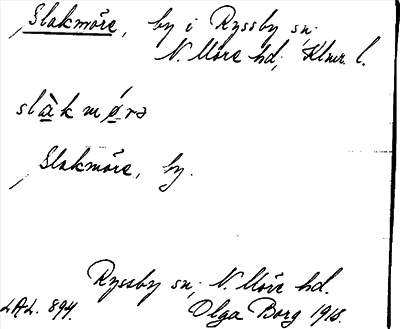 Slakmöre, by i Ryssby sn;
N. Möre hd; Klmr l.
slàkmǿrə
Slakmöre, by.
Ryssby sn; N. Möre hd.
LAL. 894. Olga Borg 1918.